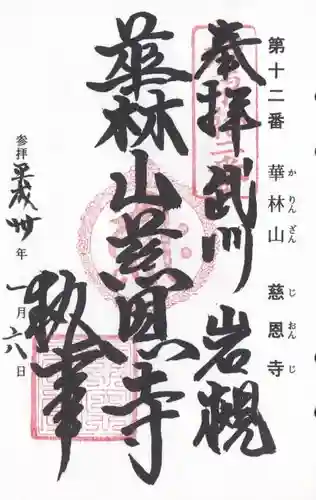 第十二番 華林山 慈恩寺
か りんざん じ おん じ
奉拝 武州 岩槻
華林山慈恩寺
執事
参拝 平成卅年一月六八日